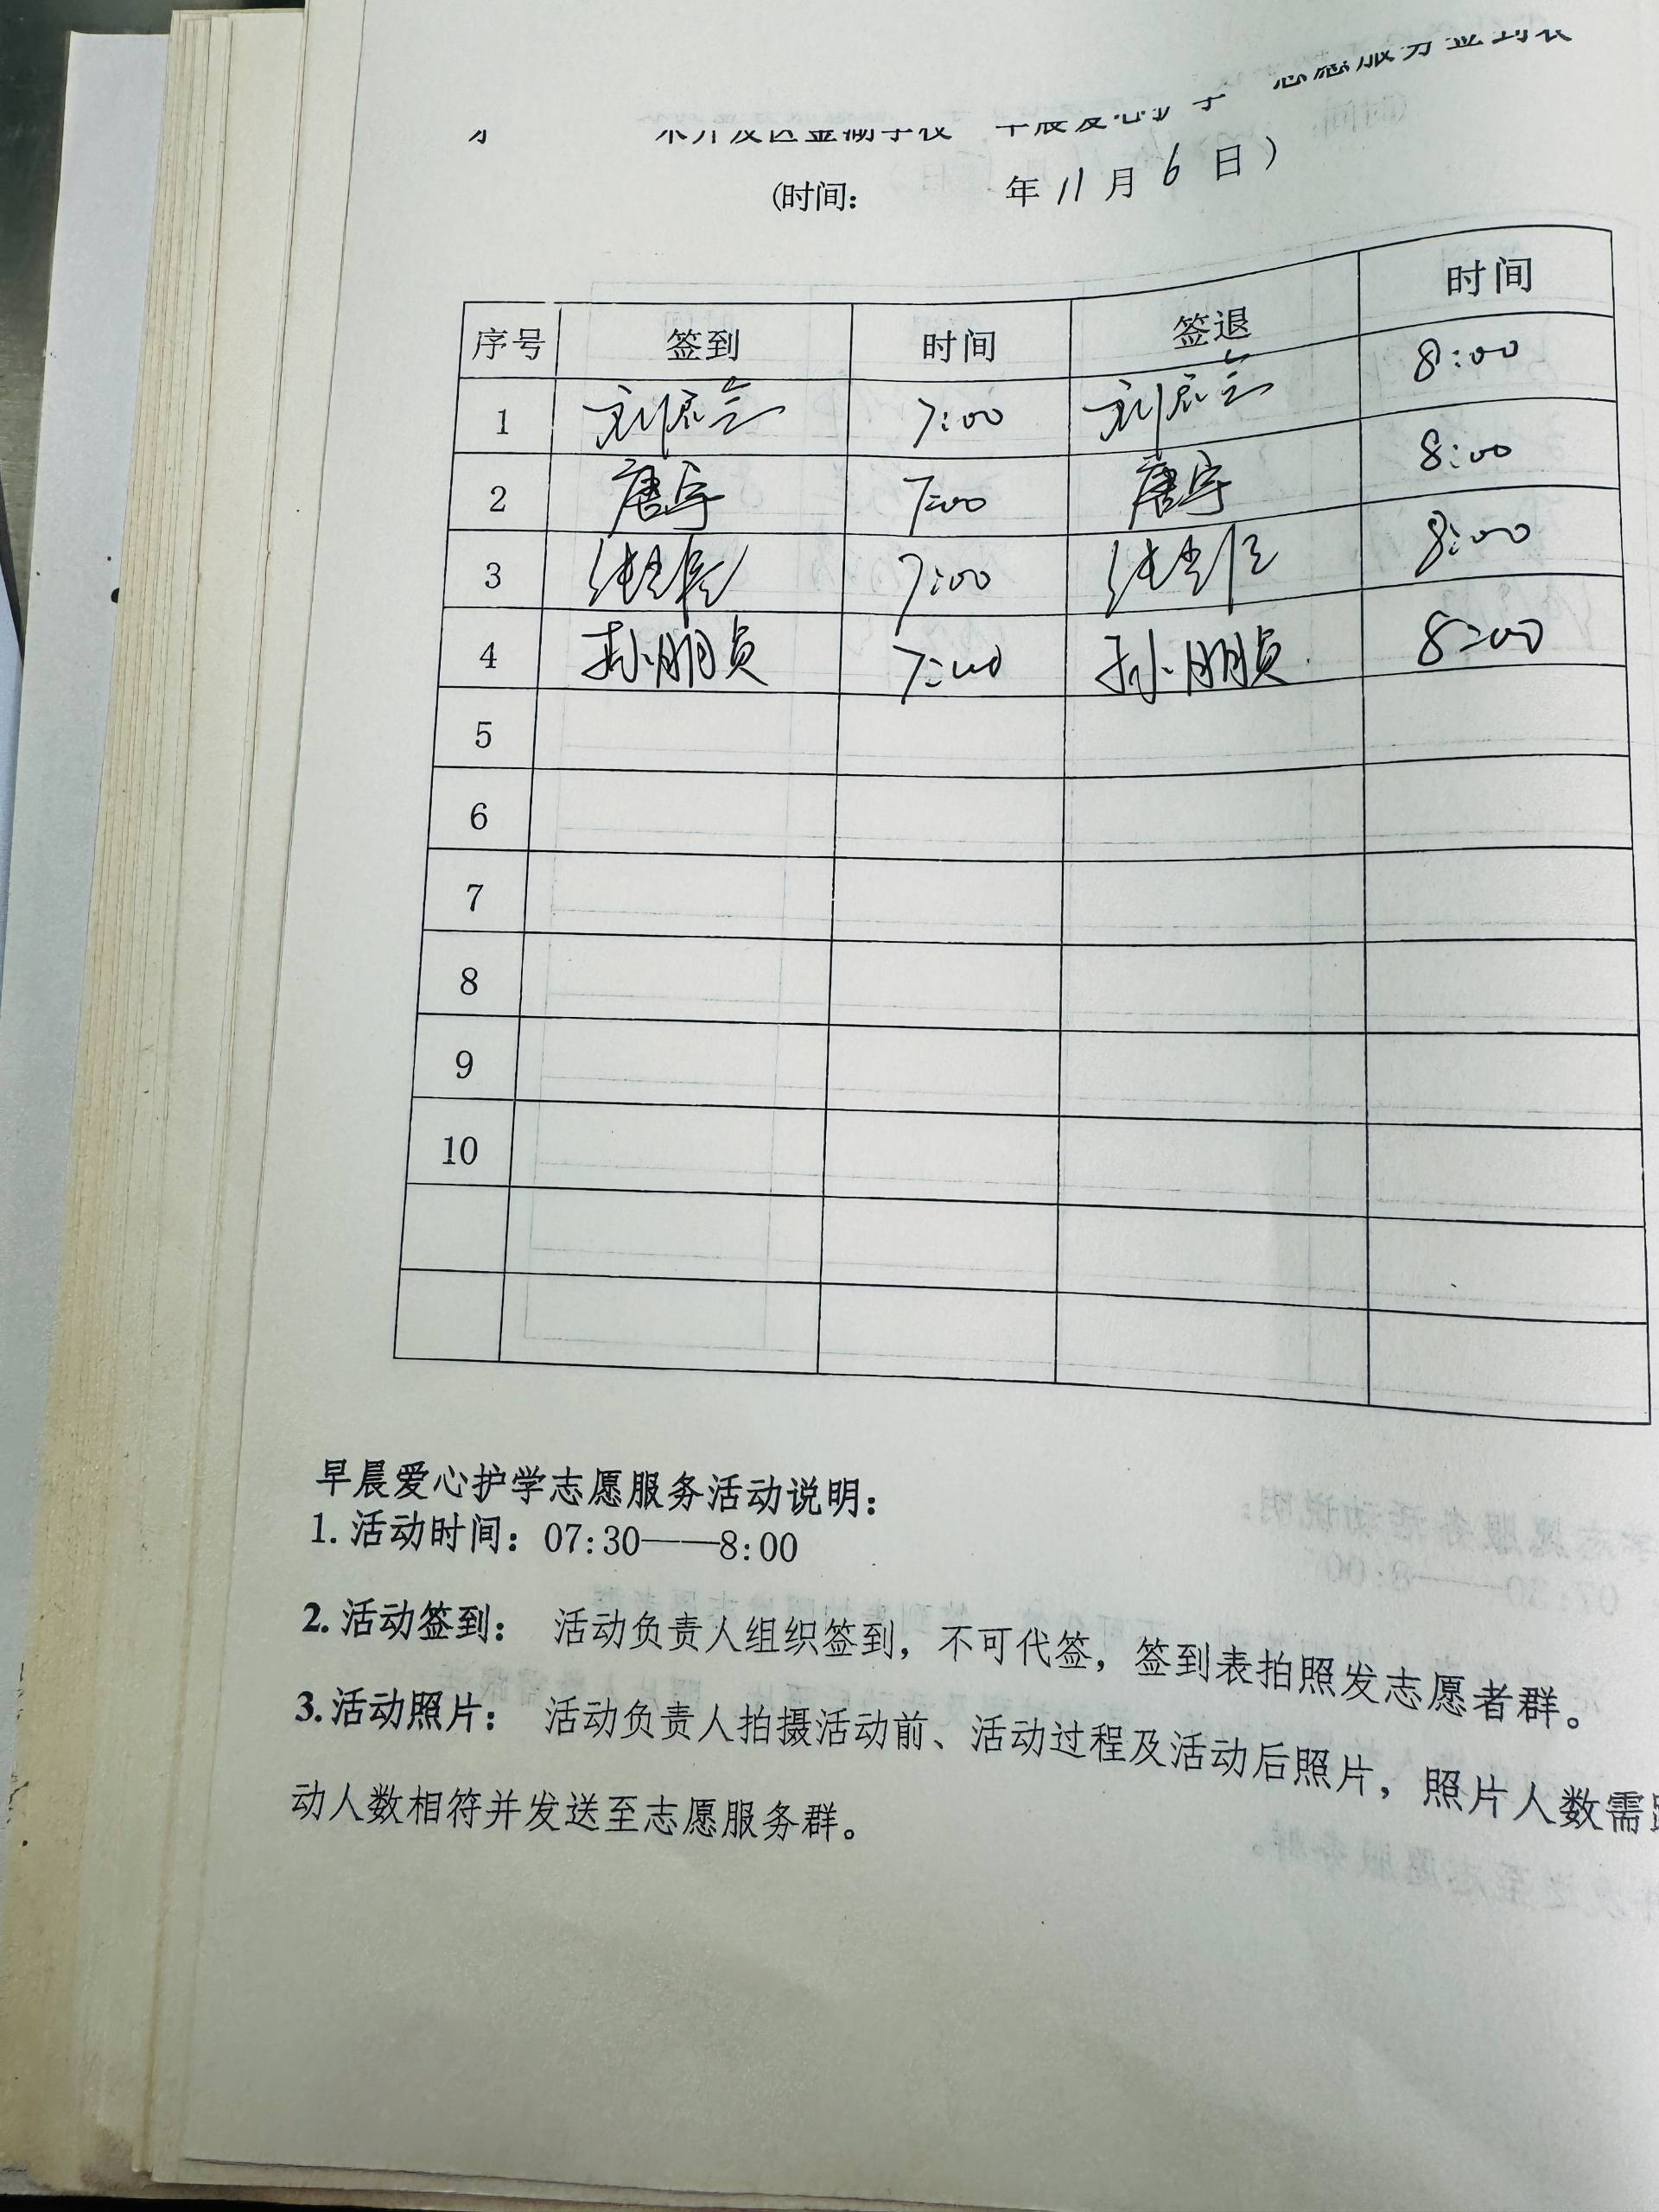 (时间： 年11月6日)
序号 签到 时间 签退 时间
1 7:00 8:00
2 唐宇 7:00 唐宇 8:00
3 7:00 8:00
4 孙朋贞 7:00 孙朋贞 8:00
5
6
7
8
9
10
早晨爱心护学志愿服务活动说明：
1. 活动时间：07:30——8:00
2. 活动签到： 活动负责人组织签到，不可代签，签到表拍照发志愿者群。
3. 活动照片： 活动负责人拍摄活动前、活动过程及活动后照片，照片人数需
动人数相符并发送至志愿服务群。